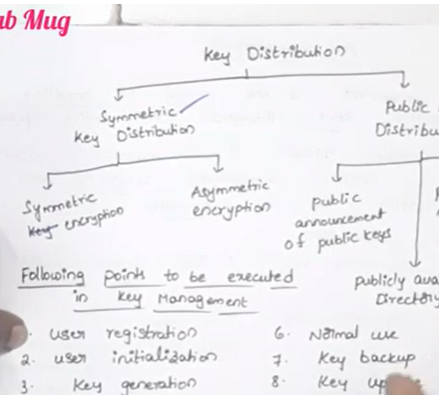 ab Mug
Key Distribution
Symmetric
Key Distribution
Public
Symmetric
encryption
Asymmetric
encryption
public
announcement
of public keys
publicly
Following points to be executed
in Key Management
user registration
2. user initialization
3. Key generation
6. Normal use
7. Key backup
8. Key